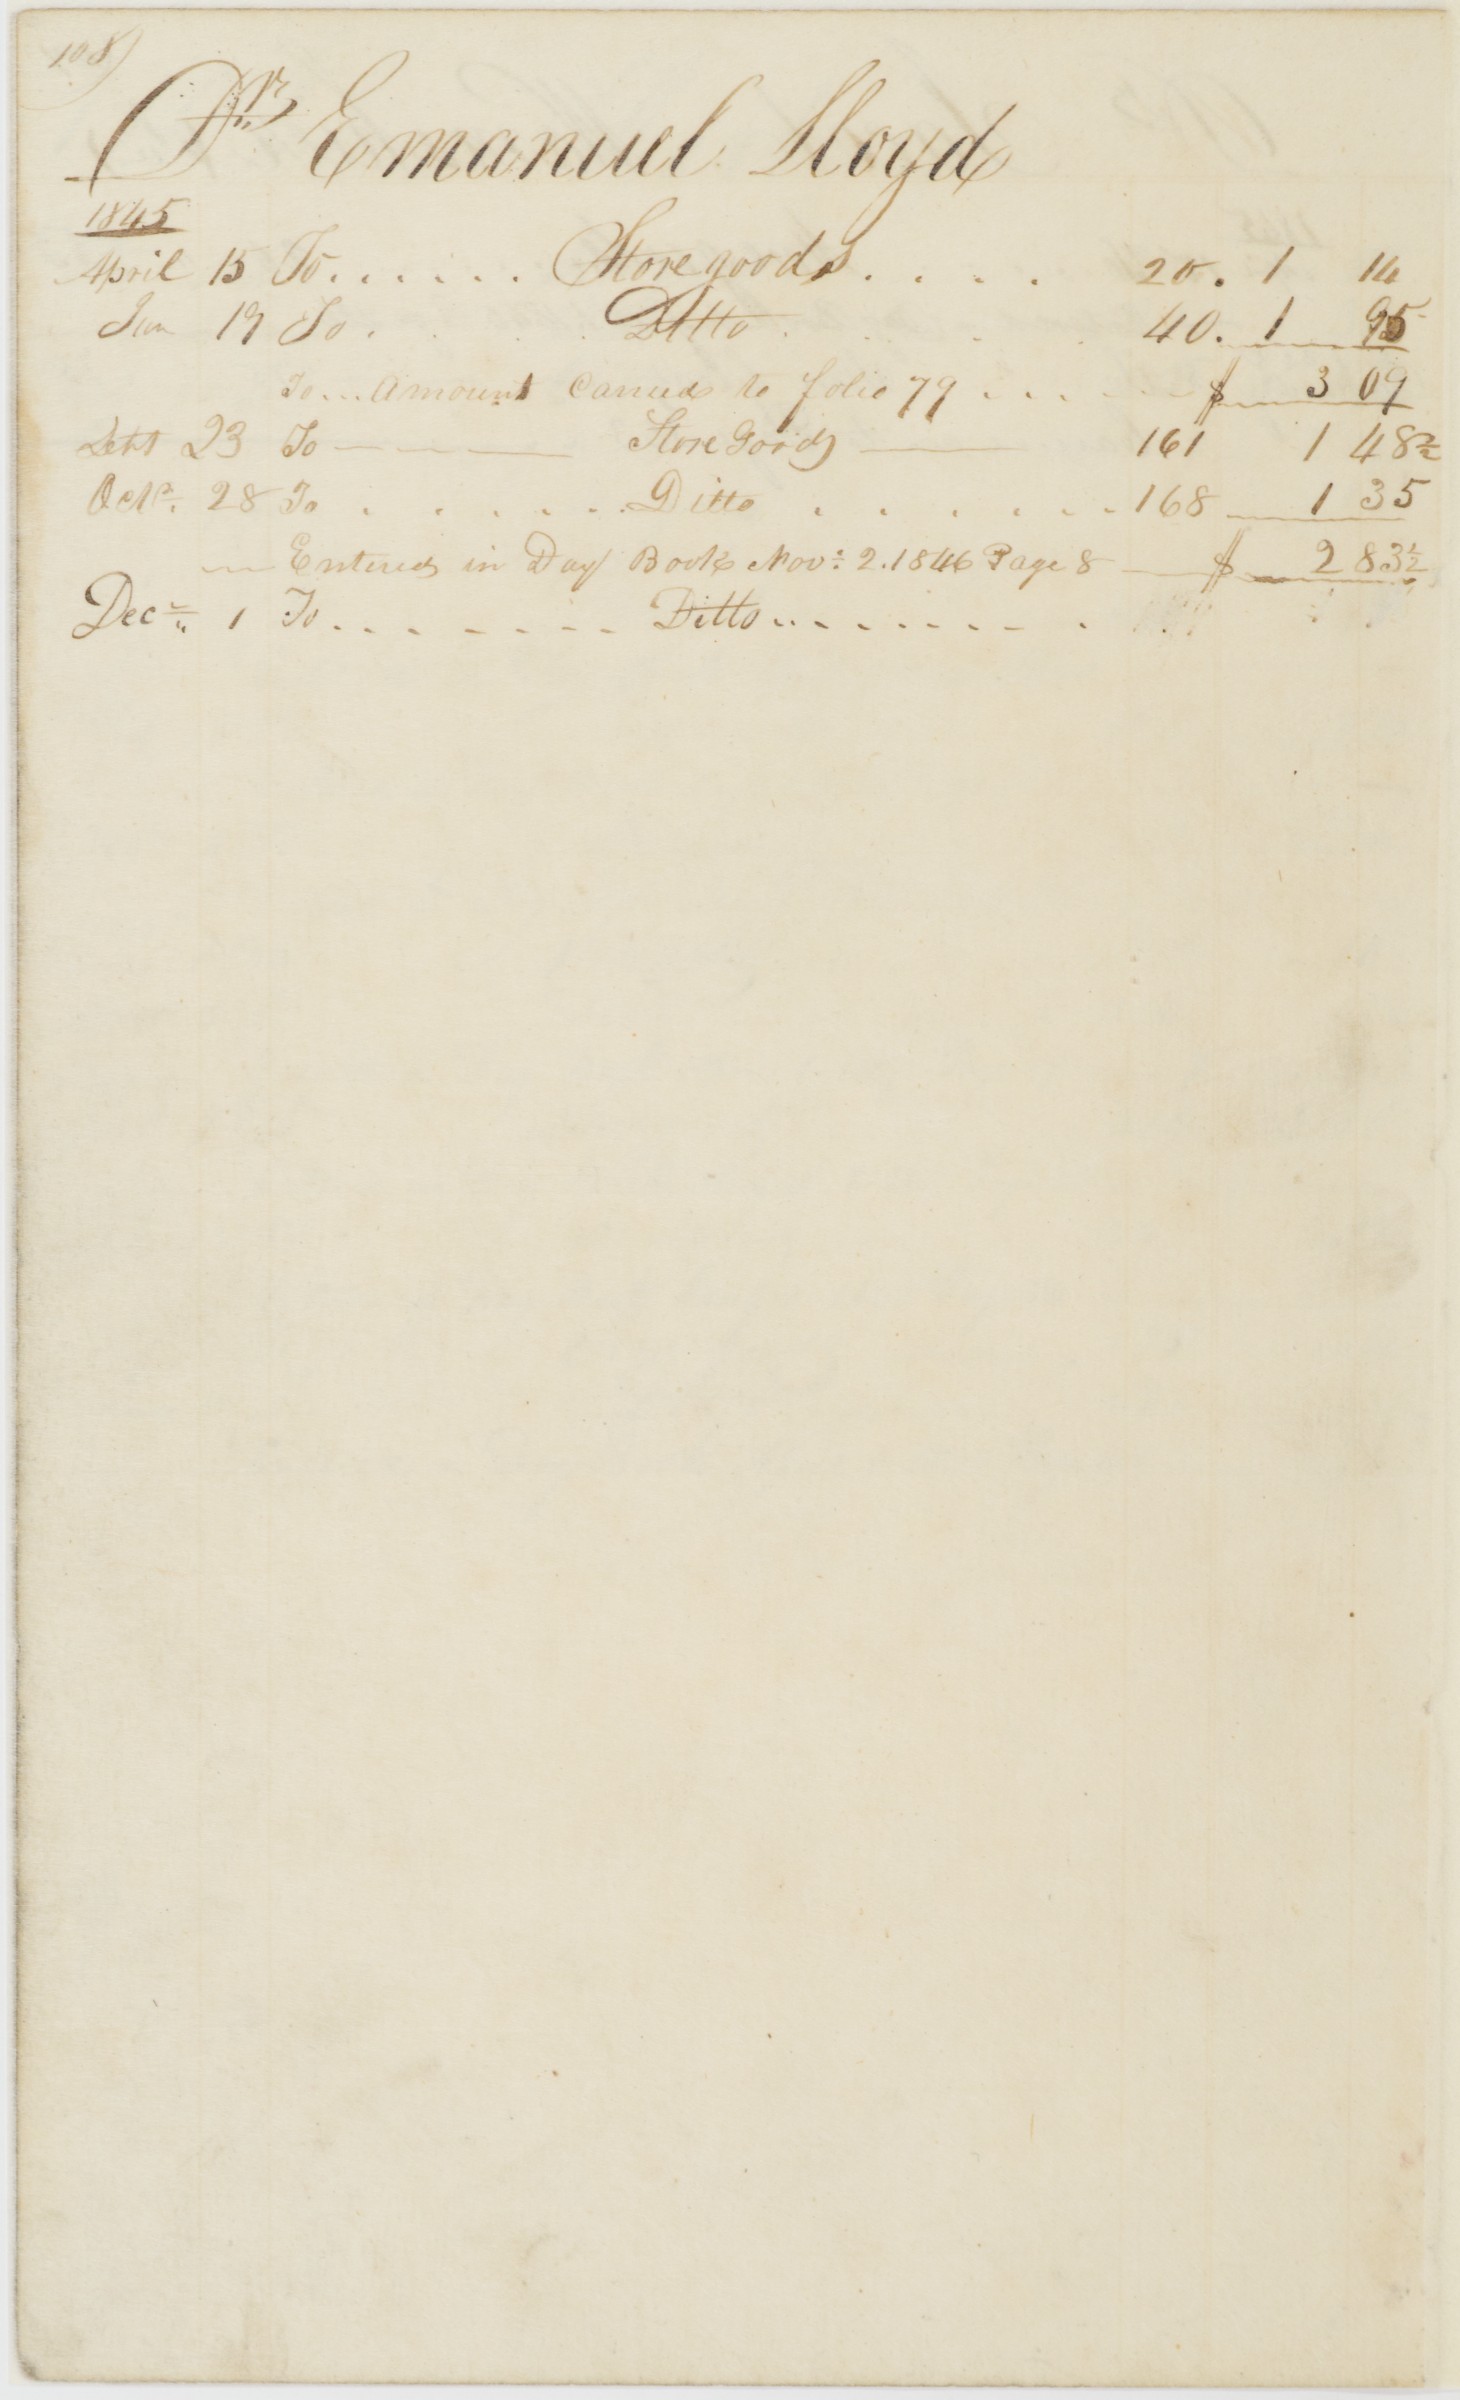 108)
Dr Emanuel Lloyd
1845
April 15 To . . . . . . Store goods . . . . 20. 1 14
Jun 19 To . . . . Ditto . . . . . 40. 1 95
To... Amount Carried to folio 79 . . . . . . $ 3 09
Sept 23 To ———— Store Goods ——— 161 1 48½
Octr. 28 To . . . . . . Ditto . . . . . . 168 1 35
— Entered in Day Book Nov: 2. 1846 Page 8 — $ 2 83½
Decr 1 To . . . . . . . . Ditto . . . . . . . . .